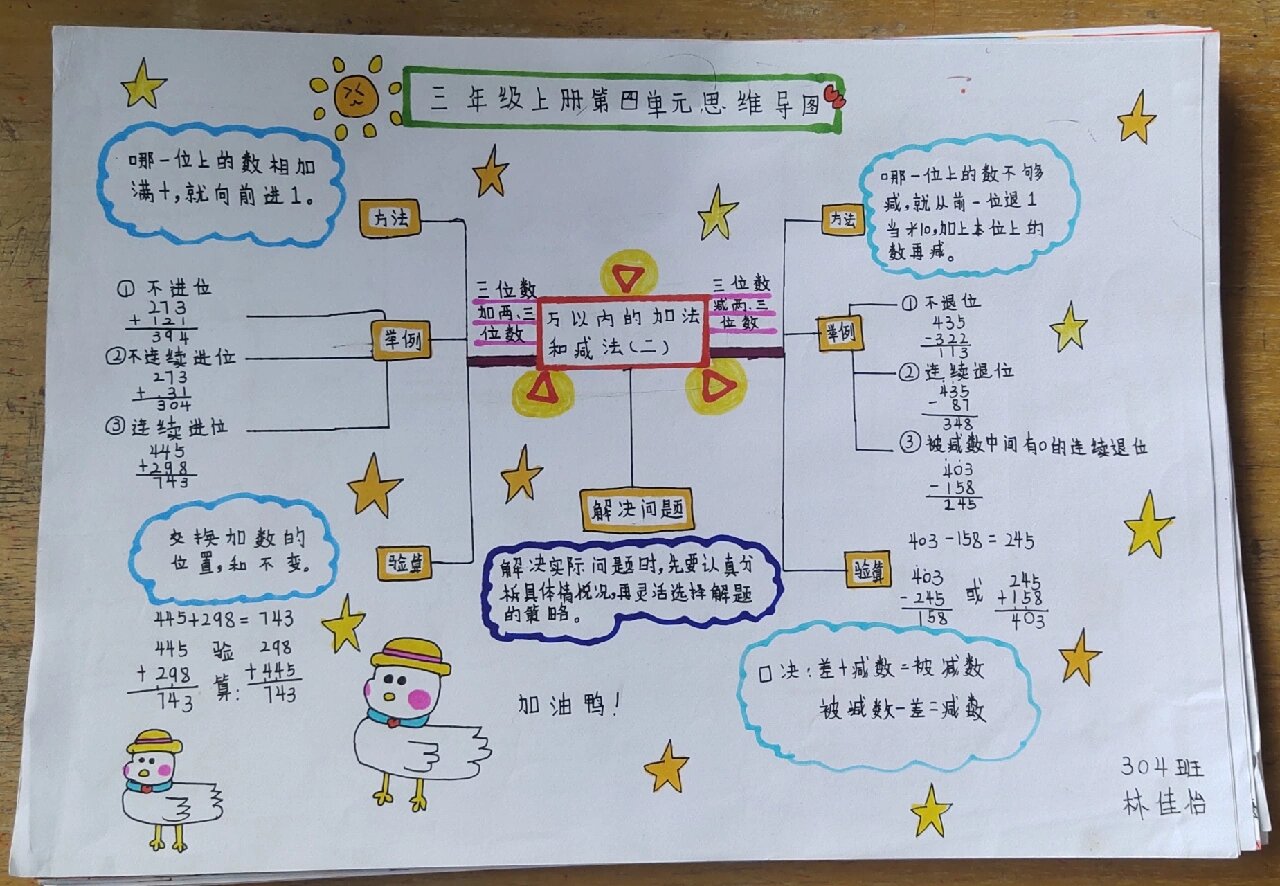 三年级上册第四单元思维导图
哪一位上的数相加
满十,就向前进1。
方法
三位数
加两、三
位数
举例
① 不进位
273
+ 121
394
②不连续进位
273
+ 31
304
③ 连续进位
445
+298
743
验算
交换加数的
位置,和不变。
445+298=743
445 验 298
+ 298 算: +445
743 743
万以内的加法
和减法(二)
解决问题
解决实际问题时,先要认真分
析具体情况,再灵活选择解题
的策略。
加油鸭!
三位数
减两、三
位数
方法
哪一位上的数不够
减,就从前一位退1
当才10,加上本位上的
数再减。
举例
① 不退位
435
-322
113
② 连续退位
435
- 87
348
③ 被减数中间有0的连续退位
403
-158
245
验算
403-158=245
403 或 245
-245 +158
158 403
口决:差+减数=被减数
被减数-差=减数
304班
林佳怡